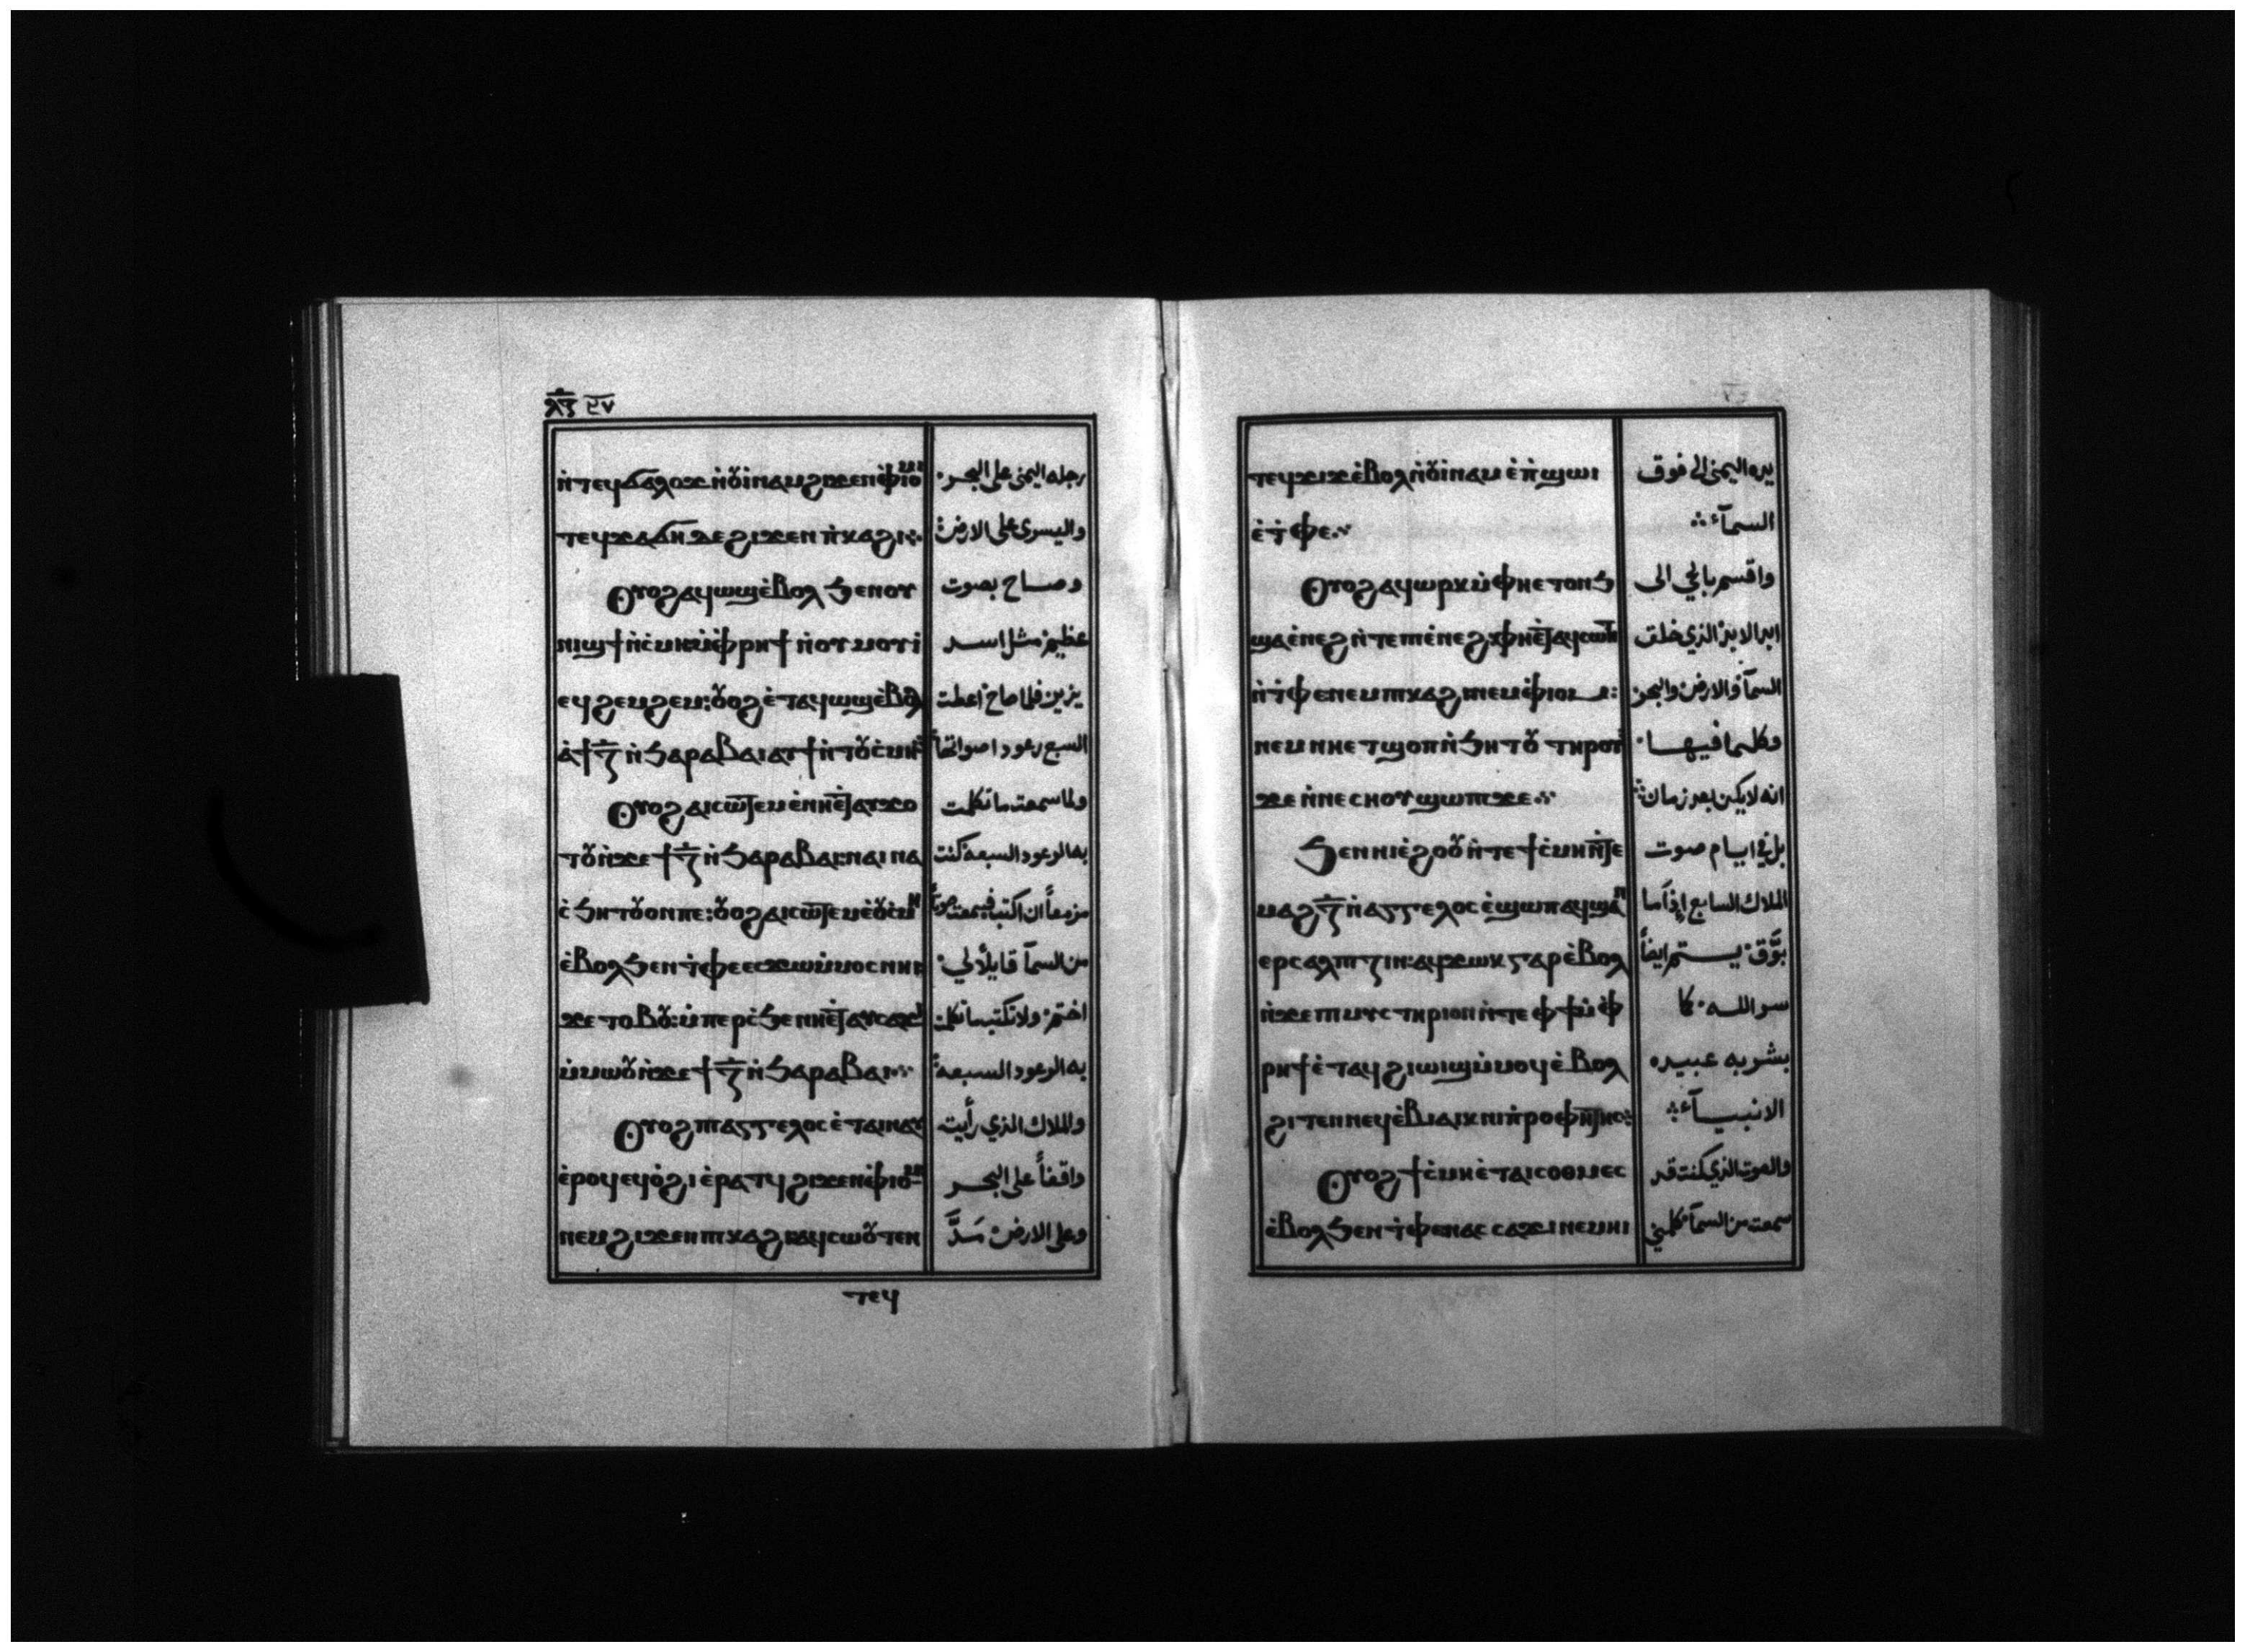 ⲗⲍ ٣٧
ⲛ̀ⲧⲉϥϭⲁⲗⲟϫ ⲛ̀ⲟⲩ̀ⲓⲛⲁⲙ ϩⲓϫⲉⲛ ⲫ̀ⲓⲟⲙ رجله اليمني على البحر.
ⲧⲉϥϫⲁϭⲏ ⲇⲉ ϩⲓϫⲉⲛ ⲡ̀ⲕⲁϩⲓ⁘ واليسرى على الارض
Ⲟⲩⲟϩ ⲁϥⲱϣ ⲉ̀ⲃⲟⲗ ϧⲉⲛ ⲟⲩ وصاح بصوت
ⲛⲓϣϯ ⲛ̀ⲥ̀ⲙⲏ ⲙ̀ⲫ̀ⲣⲏϯ ⲛ̀ⲟⲩⲙⲟⲩⲓ عظيم مثل اسد
ⲉϥϩⲉⲙϩⲉⲙ: ⲟⲩⲟϩ ⲉ̀ⲧⲁϥⲱϣ ⲉ̀ⲃⲟⲗ يزير فلما صاح اعطت
ⲁ̀ϯⲍ̅ ⲛ̀ϧⲁⲣⲁⲃⲁⲓ ⲁⲩϯ ⲛ̀ⲧⲟⲩⲥ̀ⲙⲏ السبع رعود اصواتها
Ⲟⲩⲟϩ ⲁⲓⲥⲱⲧⲉⲙ ⲉ̀ⲛⲏⲉ̀ⲧⲁⲩϫⲟ ولما سمعت ما تكلمت
ⲧⲟⲩ ⲛ̀ϫⲉ ϯⲍ̅ ⲛ̀ϧⲁⲣⲁⲃⲁⲓ: ⲛⲁⲓⲛⲁ به الرعود السبعه كنت
ⲥ̀ϧⲏⲧⲟⲩ ⲟⲛ ⲡⲉ: ⲟⲩⲟϩ ⲁⲓⲥⲱⲧⲉⲙ ⲉ̀ⲟⲩⲥ̀ⲙⲏ مزمعاً ان اكتب فسمعت صوتاً
ⲉ̀ⲃⲟⲗ ϧⲉⲛ ⲧ̀ⲫⲉ ⲉⲥϫⲱ ⲙ̀ⲙⲟⲥ ⲛⲏⲓ من السمآ قايلاً لي
ϫⲉ ⲧⲟⲃⲟⲩ: ⲙ̀ⲡⲉⲣⲥ̀ϧⲉ ⲛⲏⲉ̀ⲧⲁⲩⲥⲁϫⲓ اختم ولا تكتب ما تكلمت
ⲙ̀ⲙⲱⲟⲩ ⲛ̀ϫⲉ ϯⲍ̅ ⲛ̀ϧⲁⲣⲁⲃⲁⲓ⁘ به الرعود السبعه
Ⲟⲩⲟϩ ⲡⲓⲁⲅⲅⲉⲗⲟⲥ ⲉ̀ⲧⲁⲓⲛⲁⲩ والملاك الذي رأيت
ⲉ̀ⲣⲟϥ ⲉϥⲟ̀ϩⲓ ⲉ̀ⲣⲁⲧϥ ϩⲓϫⲉⲛ ⲫ̀ⲓⲟⲙ واقفاً على البحر
ⲛⲉⲙ ϩⲓϫⲉⲛ ⲡⲓⲕⲁϩⲓ ⲁϥⲥⲱⲟⲩⲧⲉⲛ وعلى الارض مَدَّ
ⲧⲉϥ
ⲧⲉϥϫⲓϫ ⲉ̀ⲃⲟⲗ ⲛ̀ⲟⲩ̀ⲓⲛⲁⲙ ⲉ̀ⲡ̀ϣⲱⲓ يده اليمنى الى فوق
ⲉ̀ⲧ̀ⲫⲉ⁘ السمآء
Ⲟⲩⲟϩ ⲁϥⲱⲣⲕ ⲙ̀ⲫⲏⲉⲧⲟⲛϧ واقسم بالحي الى
ϣⲁ ⲉ̀ⲛⲉϩ ⲛ̀ⲧⲉ ⲡⲓⲉ̀ⲛⲉϩ: ⲫⲏⲉ̀ⲧⲁϥⲥⲱⲛⲧ ابد الابد الذي خلق
ⲛ̀ⲧ̀ⲫⲉ ⲛⲉⲙ ⲡⲓⲕⲁϩⲓ ⲛⲉⲙ ⲫ̀ⲓⲟⲙ: السمآ والارض والبحر
ⲛⲉⲙ ⲛⲏⲉⲧϣⲟⲡ ⲛ̀ϧⲏⲧⲟⲩ ⲧⲏⲣⲟⲩ وكلما فيها.
ϫⲉ ⲛ̀ⲛⲉ ⲥⲏⲟⲩ ϣⲱⲡⲓ ϫⲉ⁘ انه لا يكن بعد زمان
Ϧⲉⲛ ⲛⲓⲉ̀ϩⲟⲟⲩ ⲛ̀ⲧⲉ ϯⲥ̀ⲙⲏ ⲛ̀ⲧⲉ بل في ايام صوت
ⲙⲁϩⲍ̅ ⲛ̀ⲁⲅⲅⲉⲗⲟⲥ ⲉ̀ϣⲱⲡ ⲁϥϣⲁⲛ الملاك السابع إذا ما
ⲉⲣⲥⲁⲗⲡⲓⲍⲓⲛ: ⲁϥϫⲱⲕ ⲅⲁⲣ ⲉ̀ⲃⲟⲗ بوَّق يستتم ايضاً
ⲛ̀ϫⲉ ⲡⲓⲙⲩⲥⲧⲏⲣⲓⲟⲛ ⲛ̀ⲧⲉ ⲫϯ ⲙ̀ⲫ̀ سر الله. كما
ⲣⲏϯ ⲉ̀ⲧⲁϥϩⲓⲱⲓϣ ⲙ̀ⲙⲟϥ ⲉ̀ⲃⲟⲗ بشر به عبيده
ϩⲓⲧⲉⲛ ⲛⲉϥⲉ̀ⲃⲓⲁⲓⲕ ⲛⲓⲡ̀ⲣⲟⲫⲏⲧⲏⲥ: الانبيــآء
Ⲟⲩⲟϩ ϯⲥ̀ⲙⲏ ⲉ̀ⲧⲁⲓⲥⲟⲑⲙⲉⲥ والصوت الذي كنت قد
ⲉ̀ⲃⲟⲗ ϧⲉⲛ ⲧ̀ⲫⲉ ⲛⲁⲥⲥⲁϫⲓ ⲛⲉⲙⲏⲓ سمعته من السمآ كلمني